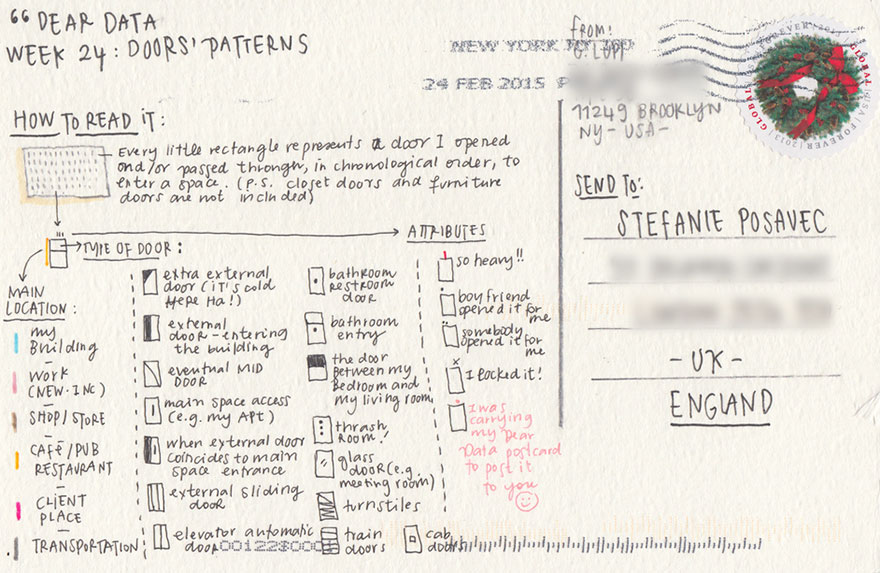 “ DEAR DATA
WEEK 24: DOORS' PATTERNS
NEW YORK NY 100
24 FEB 2015 P
FROM:
G. LUPI
11249 BROOKLYN
NY - USA -
GLOBAL
FOREVER
GLOBAL
USA FOREVER
2013
SEND TO:
STEFANIE POSAVEC
- UK -
ENGLAND
HOW TO READ IT:
Every little rectangle represents a door I opened
and/or passed through, in chronological order, to
enter a space. (P.S. closet doors and furniture
doors are not included)
TYPE OF DOOR:
ATTRIBUTES
MAIN
LOCATION:
my
Building
WORK
(NEW-INC)
SHOP/STORE
CAFÉ/PUB
RESTAURANT
CLIENT
PLACE
TRANSPORTATION
extra external
door (it's cold
Here Ha!)
external
door - entering
the building
eventual MID
DOOR
main space access
(e.g. my APT)
when external door
coincides to main
space entrance
external sliding
door
elevator automatic
door
bathroom
restroom
door
bathroom
entry
the door
between my
Bedroom and
my living room
thrash
room!
glass
door (e.g.
meeting room)
turnstiles
train
doors
cab
doors
so heavy!!
boyfriend
opened it for
me
somebody
opened it for
me
I locked it!
I was
carrying
my Dear
Data postcard
to post it
to you